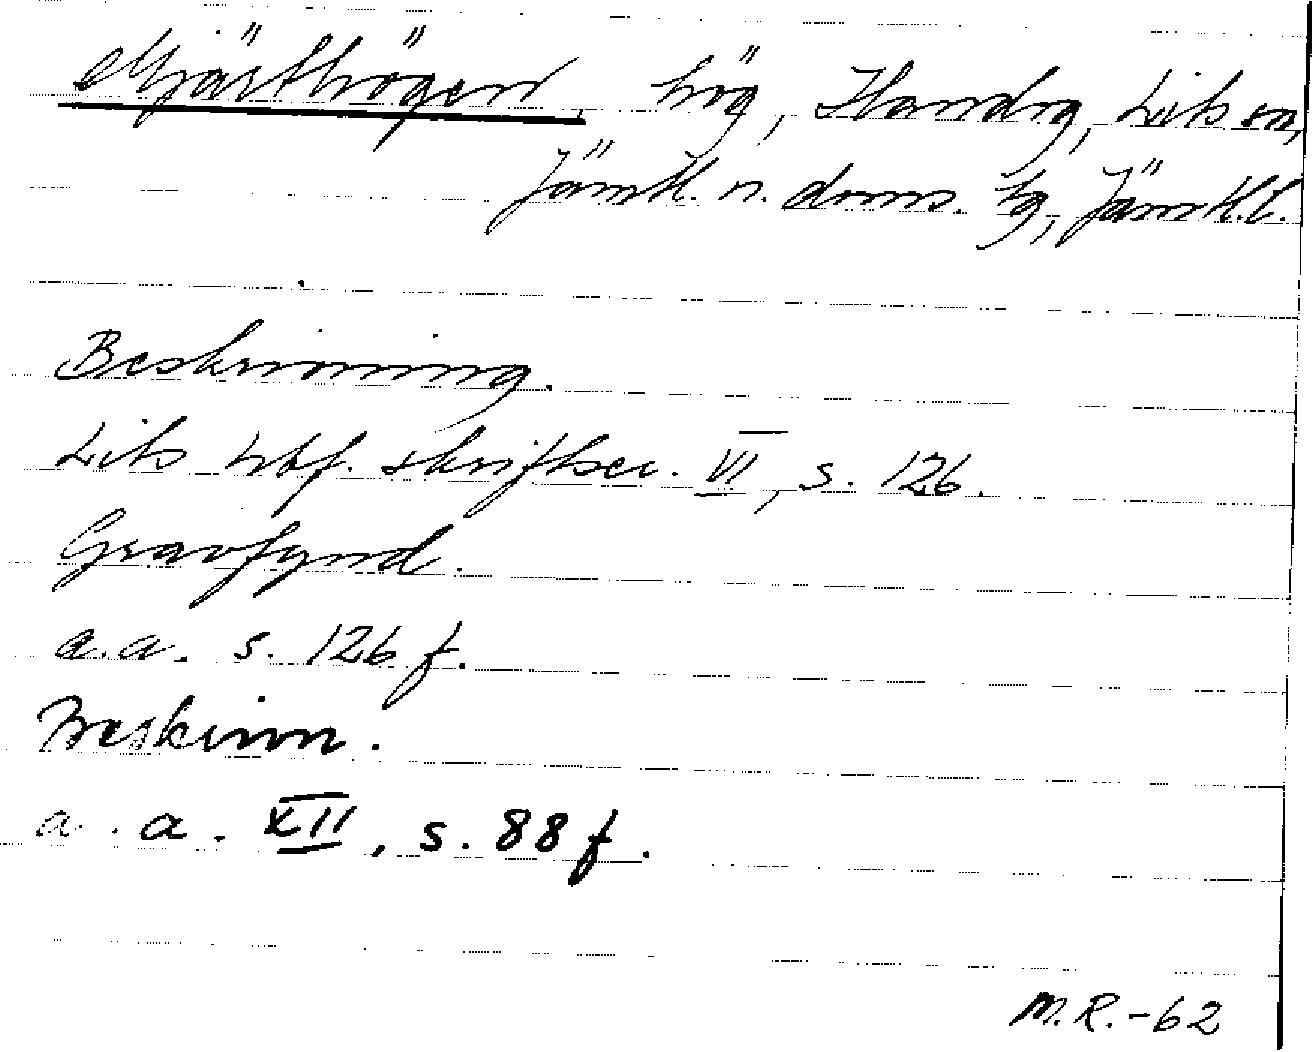 Mjästhögen, hög, Handog, Lits sn,
Jämtl. n. doms. tg, Jämtl.l.
Beskrivning.
Lits hbf. skriftser. VI, s. 126.
Gravfynd.
a.a. s. 126 f.
Beskrivn.
a.a. XII, s. 88 f.
M.R.-62